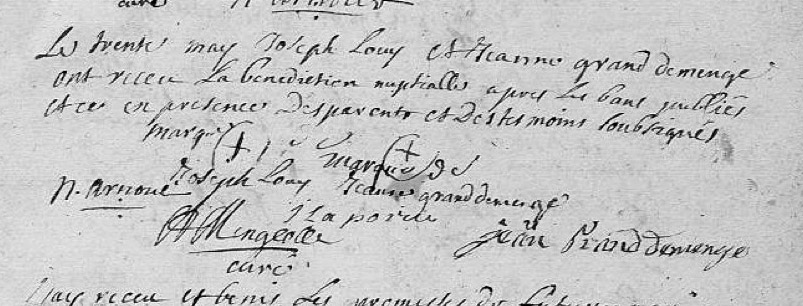 curé N. Arnoule
Le trente may Joseph Louy et Jeanne grand demenge
ont receu La benediction nuptialle apres Les bans publiés
et ce en presence des parents et des tesmoins soubsignés
marque + marque + de
N. Arnoule Joseph Louy Jeanne grand demenge
J La porte
Mengeolle Jean Grand demenge
curé
J'ay receu et benis Les promesses de